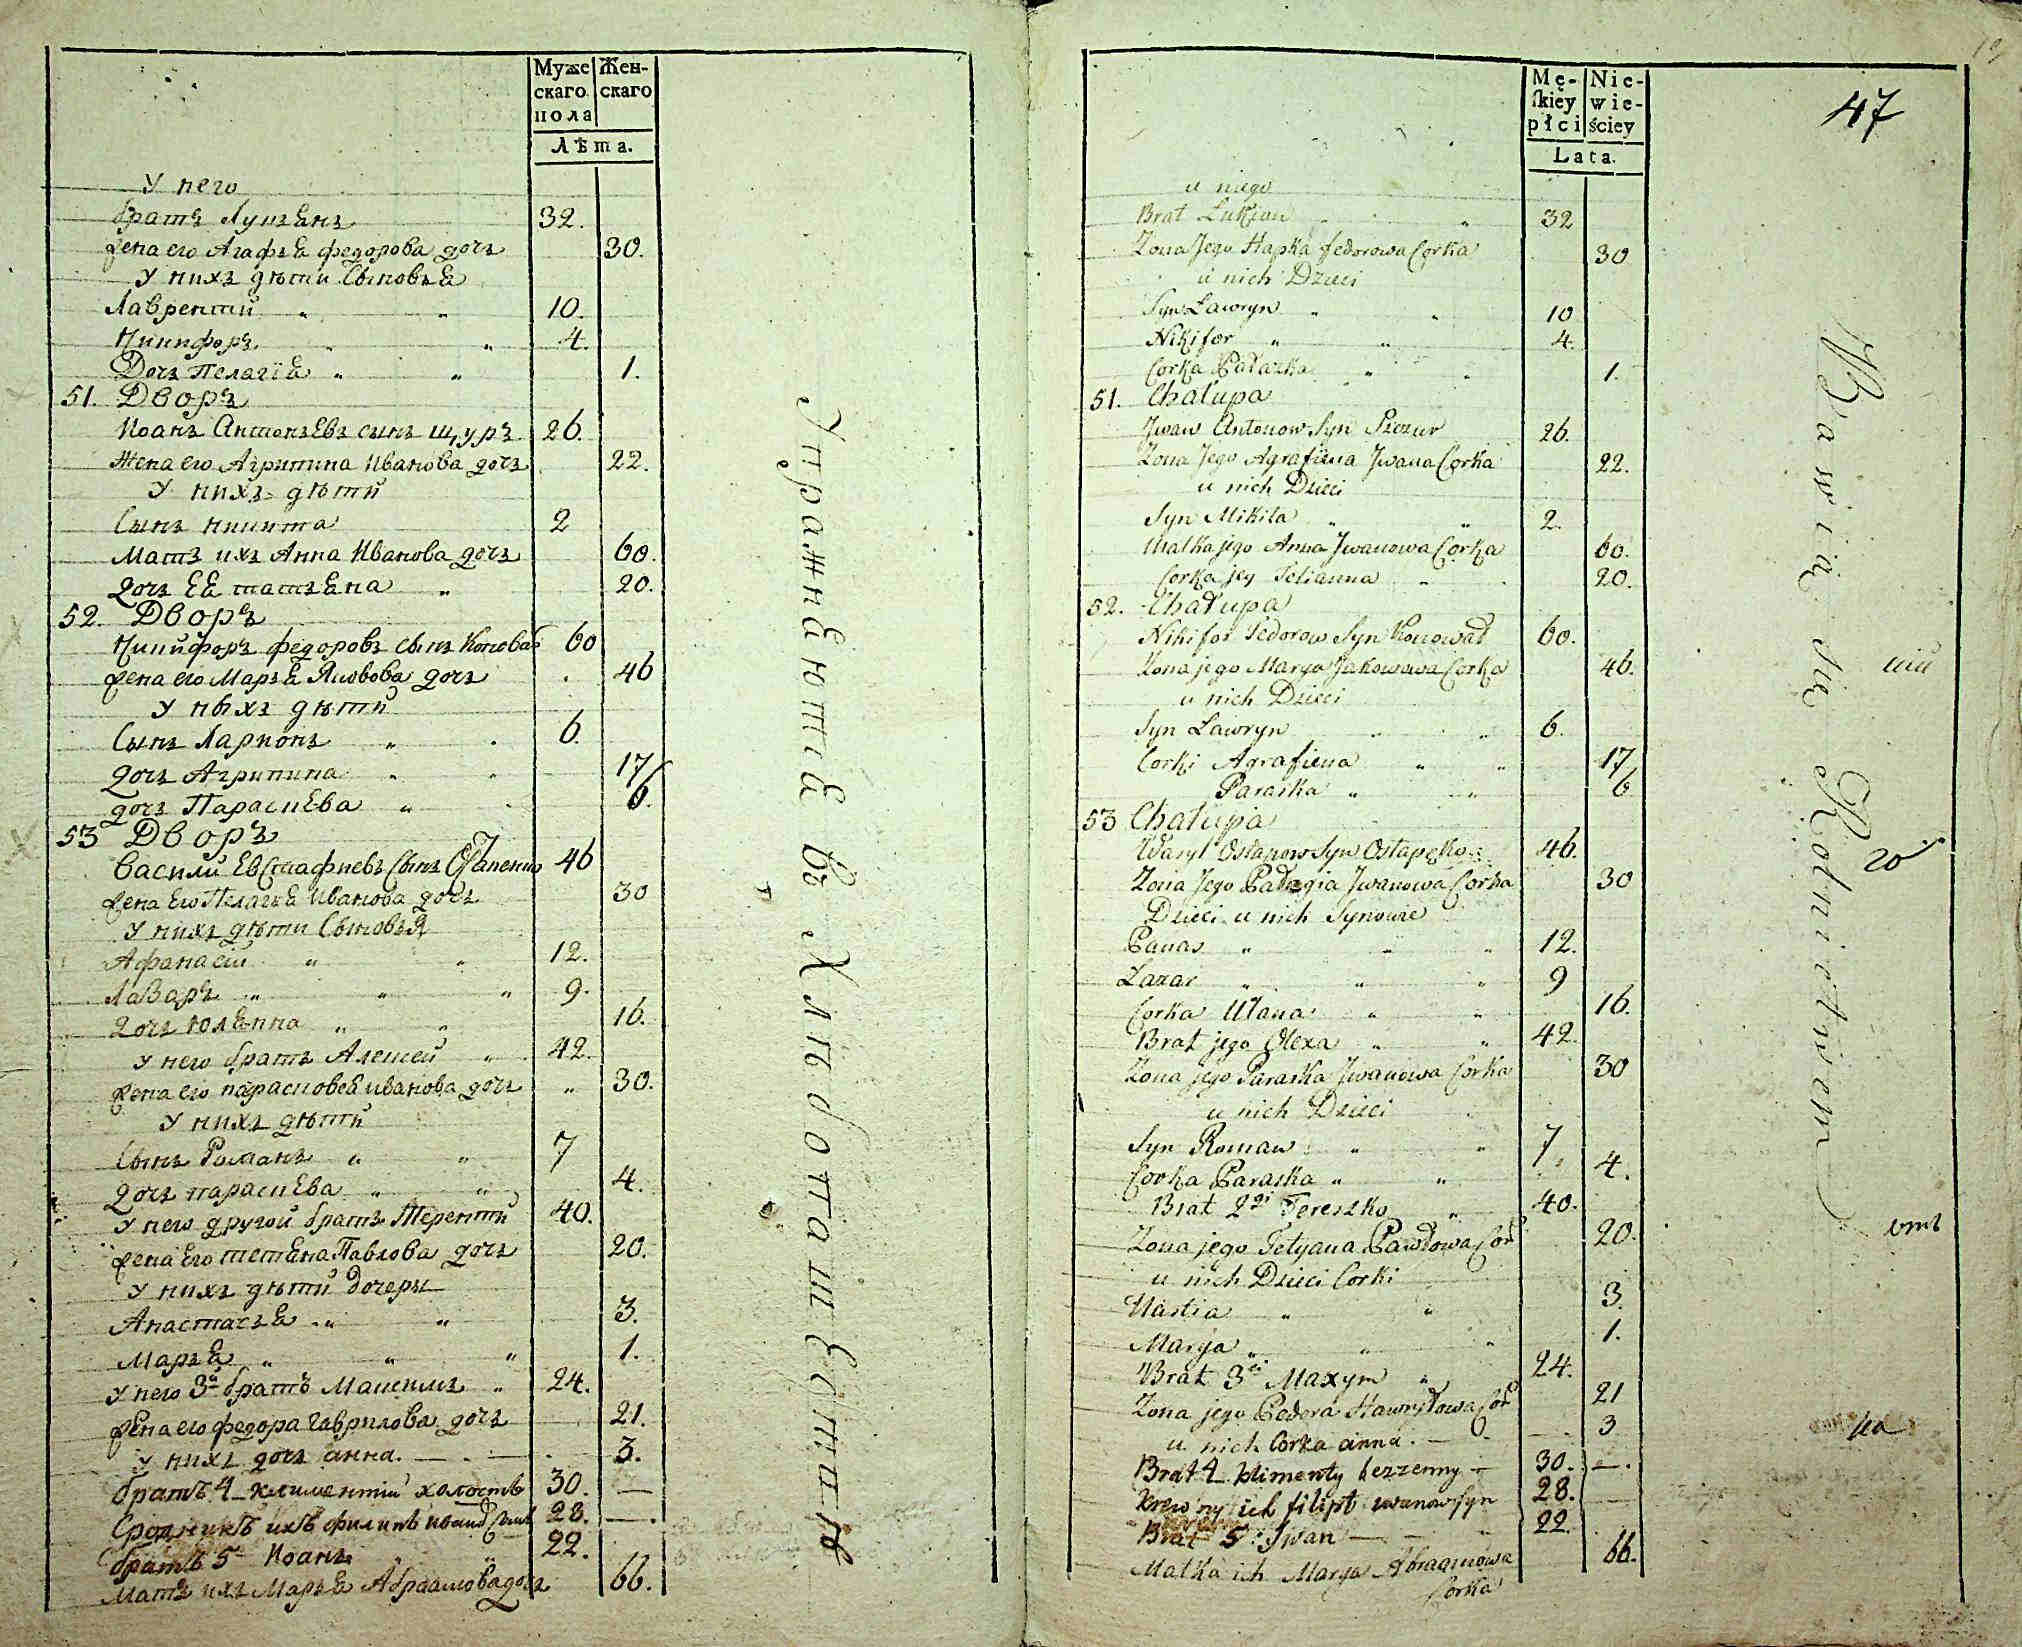 Муже
скаго
пола
Жен-
скаго
Лѣта.
У него
братъ Лукьянъ 32.
жена его Агафья федорова дочь 30.
У нихъ дѣти Сыновья
Лаврентій " " 10.
Никифоръ " " 4.
Дочь Пелагія " " 1.
51. Дворъ
Иоанъ Антоньевъ сынъ щуръ 26.
Жена его Агрипина Иванова дочь 22.
У нихъ дѣти
Сынъ никита 2
Мать ихъ Анна Иванова дочь 60.
дочь ея татьяна " 20.
52. Дворъ
Никифоръ федоровъ сынъ Коновал 60
жена его Марья Яковова дочь 46
У ныхъ дѣти
Сынъ Ларионъ " 6.
дочь Агрипина " " 17
дочь Параскева " 6.
53 Дворъ
Василий Евстафиевъ Сынъ Остапенко 46
жена Его Пелагея Иванова дочь 30
У нихъ дѣти Сыновья
Афанасій " " 12.
Лазарь " " " 9.
дочь Юлянна " " 16.
У него братъ Алексей " 42.
жена его парасковея иванова дочь " 30.
У нихъ дѣти
Сынъ Романъ " " 7
дочь параскева " " 4.
У него другой братъ Терентий 40.
жена Его тетяна Павлова дочь 20.
У нихъ дѣти дочеры
Анастасья " " 3.
Марья " " " 1.
У него 3й братъ Максимъ " 24.
жена его федора гаврилова дочь 21.
У нихъ дочь анна. 3.
братъ 4 климентий холостъ 30.
Сродникъ ихъ филипъ иванов сынъ 28.
братъ 5 Иоанъ 22.
Мать ихъ Марья Абрамова дочь 66.
Упражняются въ Хлѣбопашествѣ
Mę-
skiey
płci
Nie-
wie-
ściey
Lata.
47
u niego
Brat Łukjan " " 32
Zona Jego Hapka fedorowa Corka 30
u nich Dzieci
Syn Ławryn " " 10
Nikifor " " 4.
Corka Pałazka " " 1.
51. Chałupa
Jwan Antonow Syn Szczur 26.
Zona Jego Agrafiena Jwana Corka 22.
u nich Dzieci
Syn Mikita " " 2.
Matka jego Anna Jwanowa Corka 60.
Corka jey Tetianna " 20.
52. Chałupa
Nikifor Fedorow Syn Konował 60.
Zona jego Marya Jakowowa Corka 46.
u nich Dzieci
Syn Ławryn " " 6.
Corki Agrafiena " " 17
Paraska " " 6
53 Chałupa
Wasyl Ostapow Syn Ostapęko 46.
Zona Jego Pałagia Jwanowa Corka 30
Dzieci u nich Synowie
Panas " " " 12.
Łazar " " " 9
Corka Ulana " " 16.
Brat jego Olexa " " 42.
Zona jego Paraska Jwanowa Corka 30
u nich Dzieci
Syn Roman " " 7.
Corka Paraska " " 4.
Brat 2gi Tereszko " 40.
Zona jego Tetyana Pawłowa Cor 20.
u nich Dzieci Corki
Nastia " " 3.
Marya " " " 1.
Brat 3ci Maxym " 24.
Zona jego Fedora Hawryłowa Cor 21
u nich Corka anna. 3
Brat 4 klimenty bezzenny 30.
krewny ich filipt iwanow syn 28.
Brat 5. Iwan 22.
Matka ich Marya Abraamowa 66.
Corka
Bawią się Rolnictwem
20